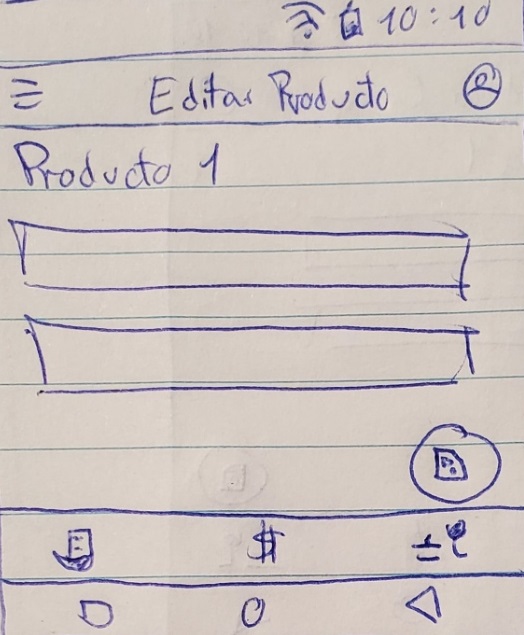 10:10
Editar Producto
Producto 1
$